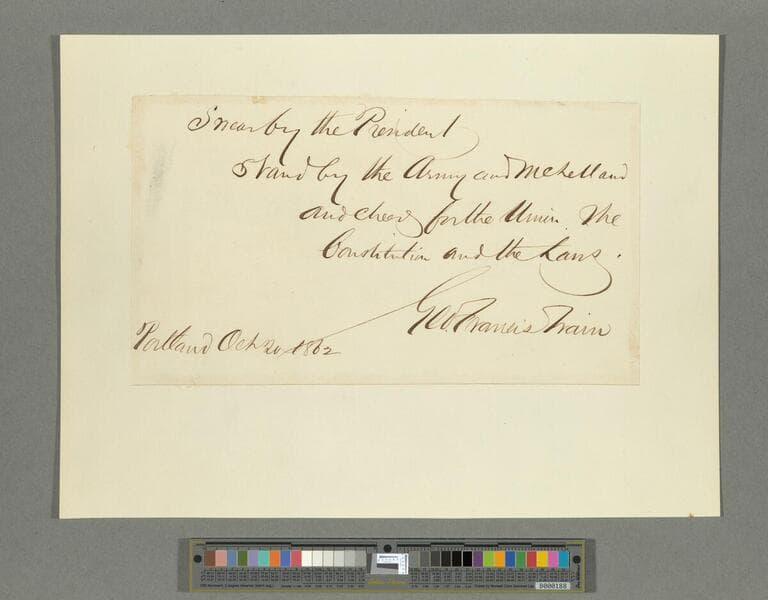 Swear by the President
Stand by the Army and McClelland
and cheer for the Union. The
Constitution and the Laws.
Geo Francis Train
Portland Oct 20 1862
B000188